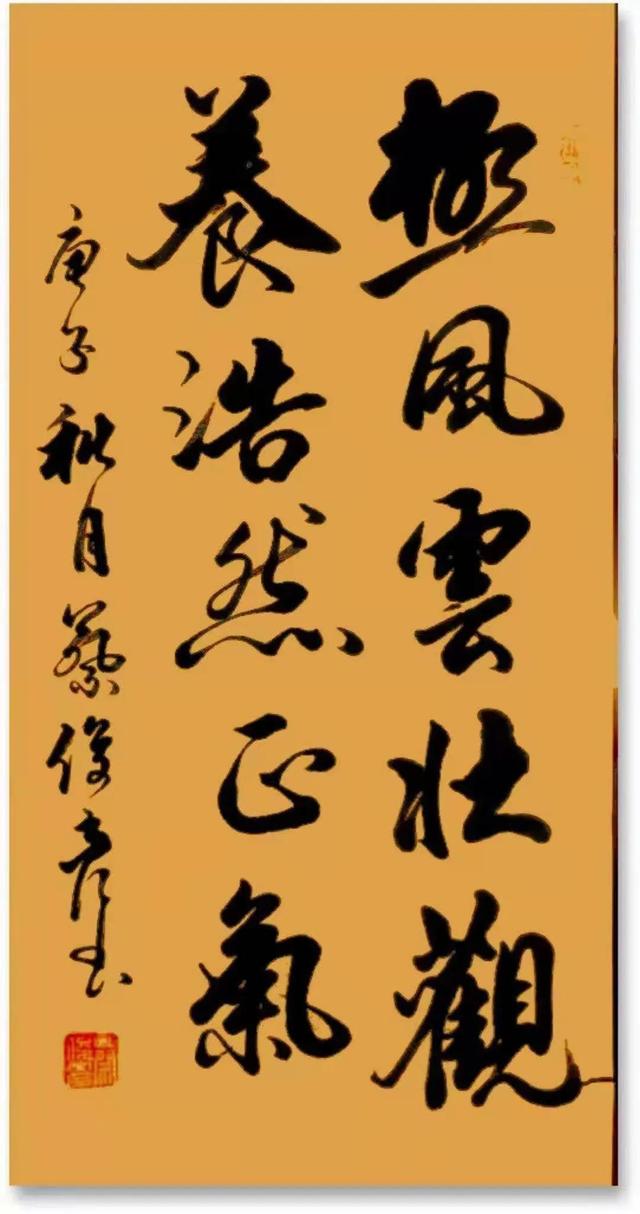 極風雲壯觀
養浩然正氣
庚子秋月蔡俊彦书